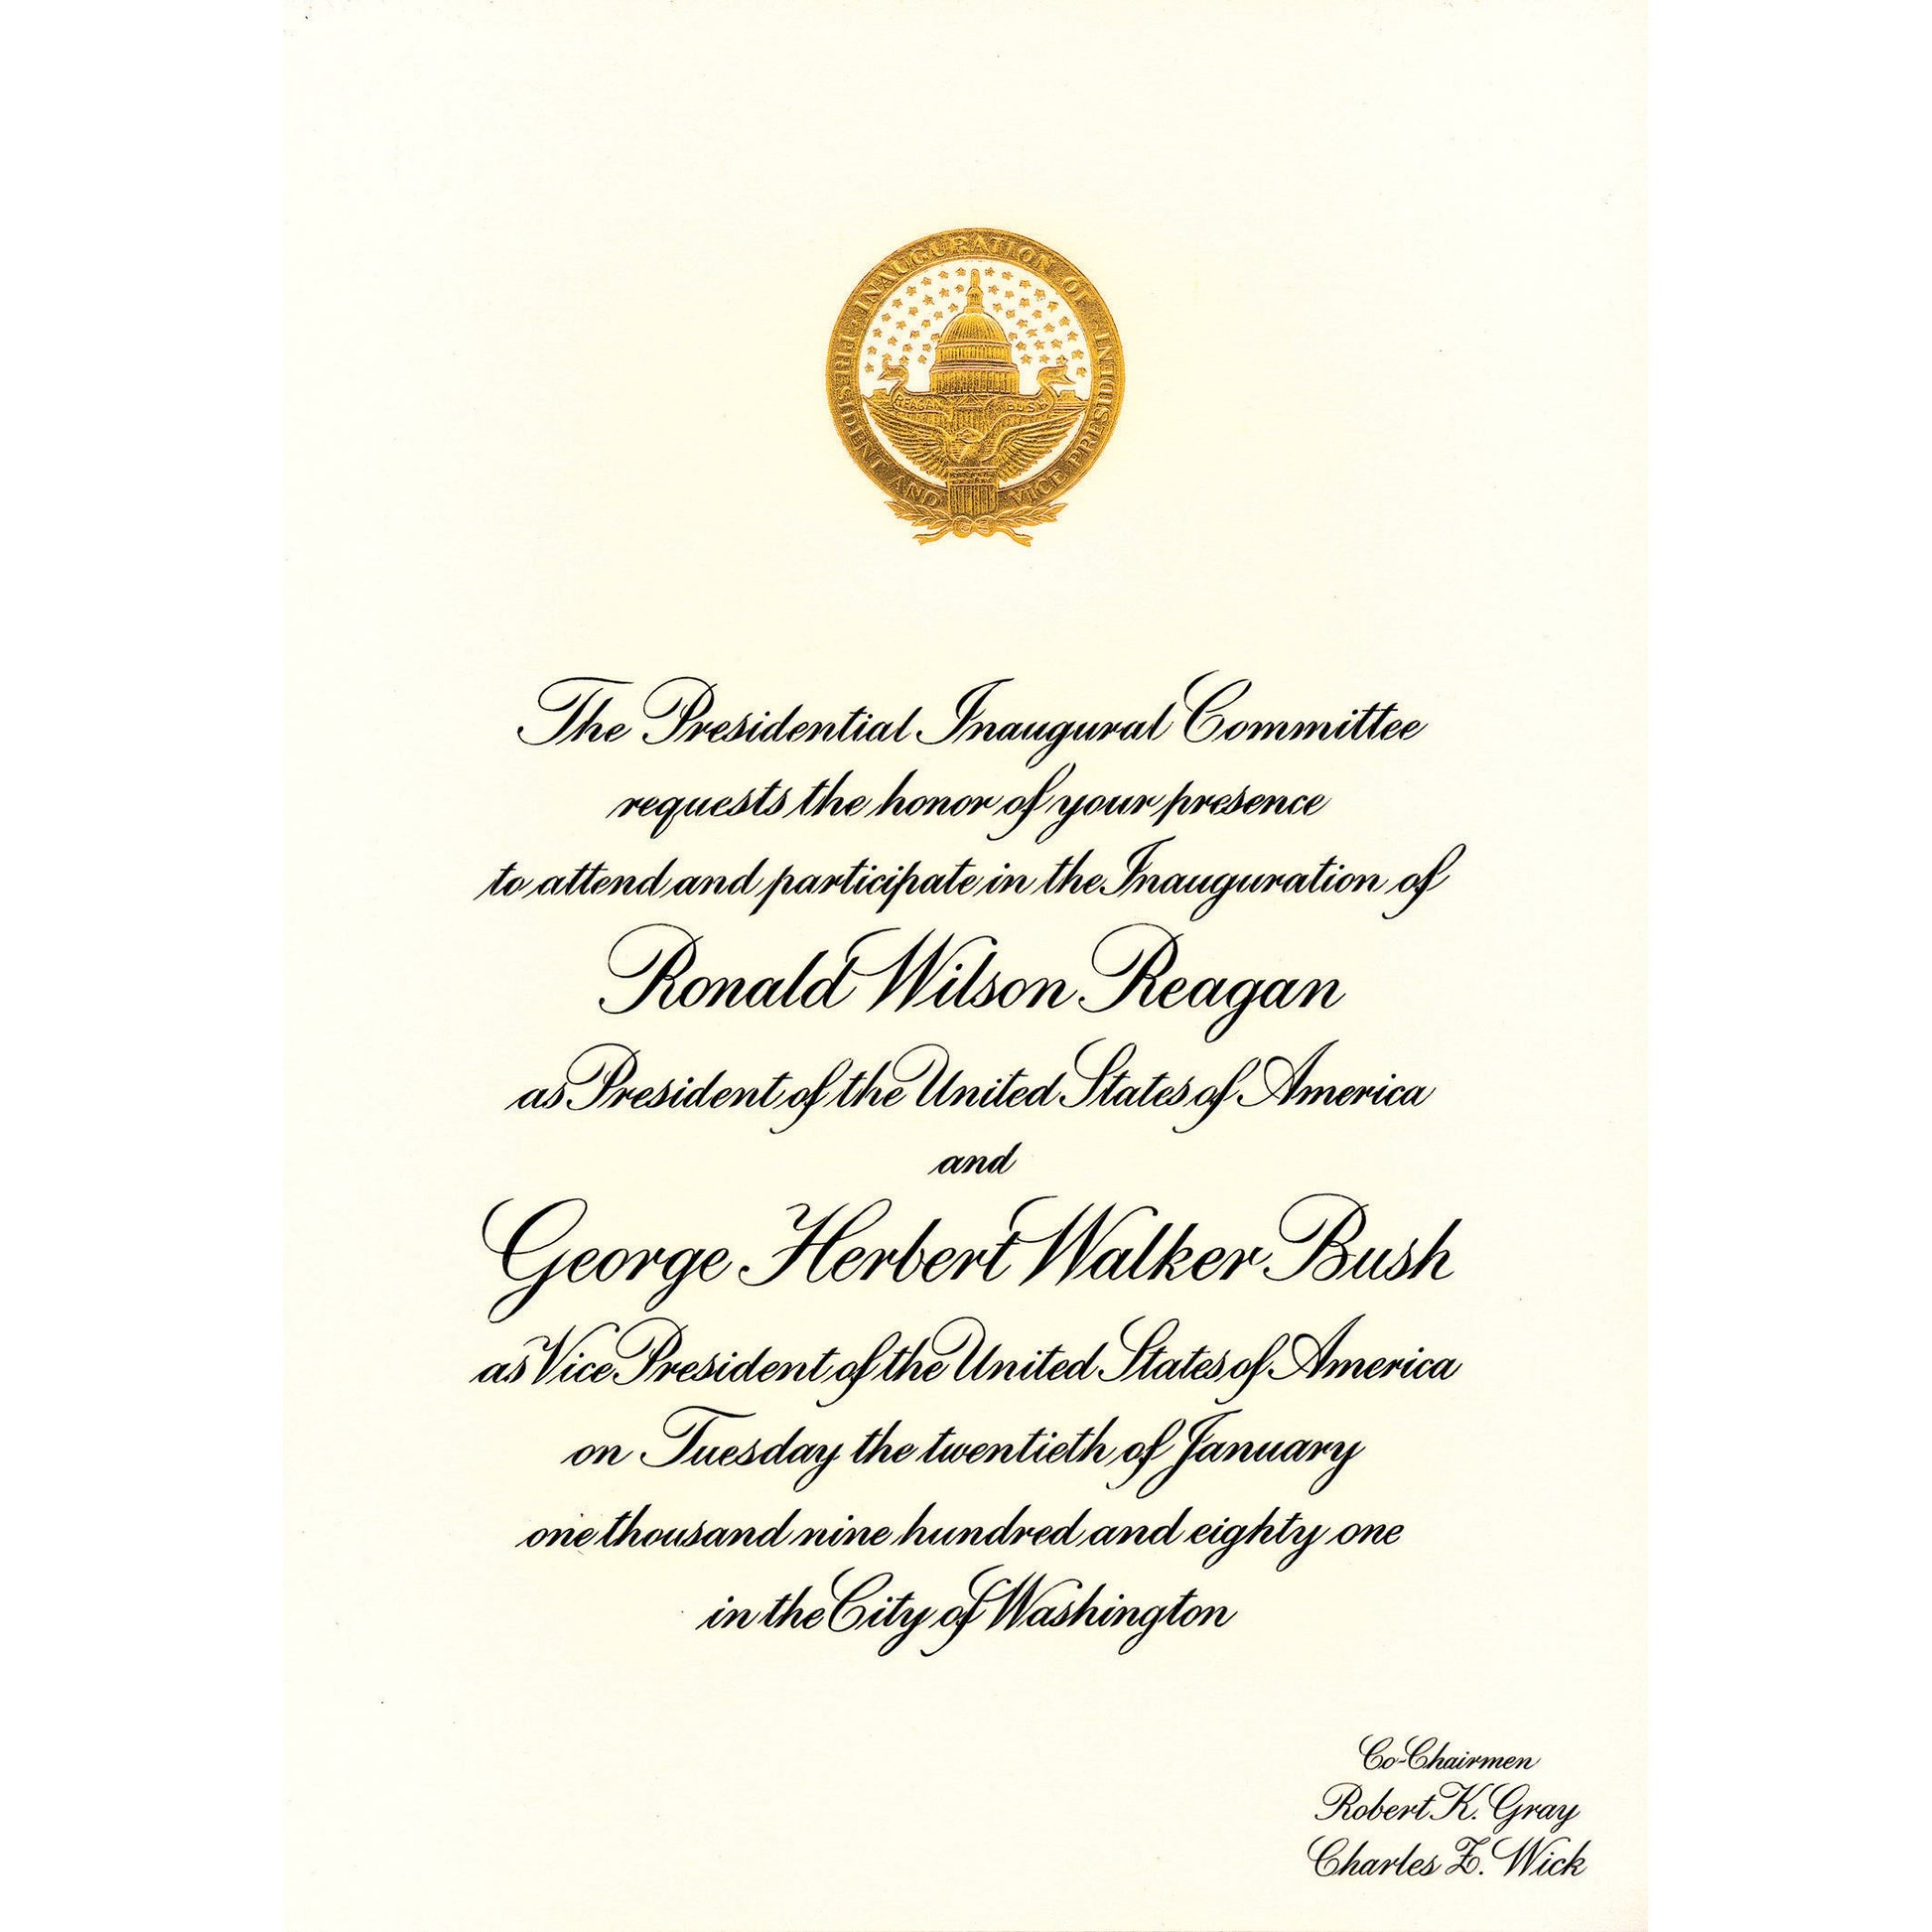 INAUGURATION OF PRESIDENT AND VICE PRESIDENT
REAGAN BUSH
The Presidential Inaugural Committee
requests the honor of your presence
to attend and participate in the Inauguration of
Ronald Wilson Reagan
as President of the United States of America
and
George Herbert Walker Bush
as Vice President of the United States of America
on Tuesday the twentieth of January
one thousand nine hundred and eighty one
in the City of Washington
Co-Chairmen
Robert K. Gray
Charles Z. Wick